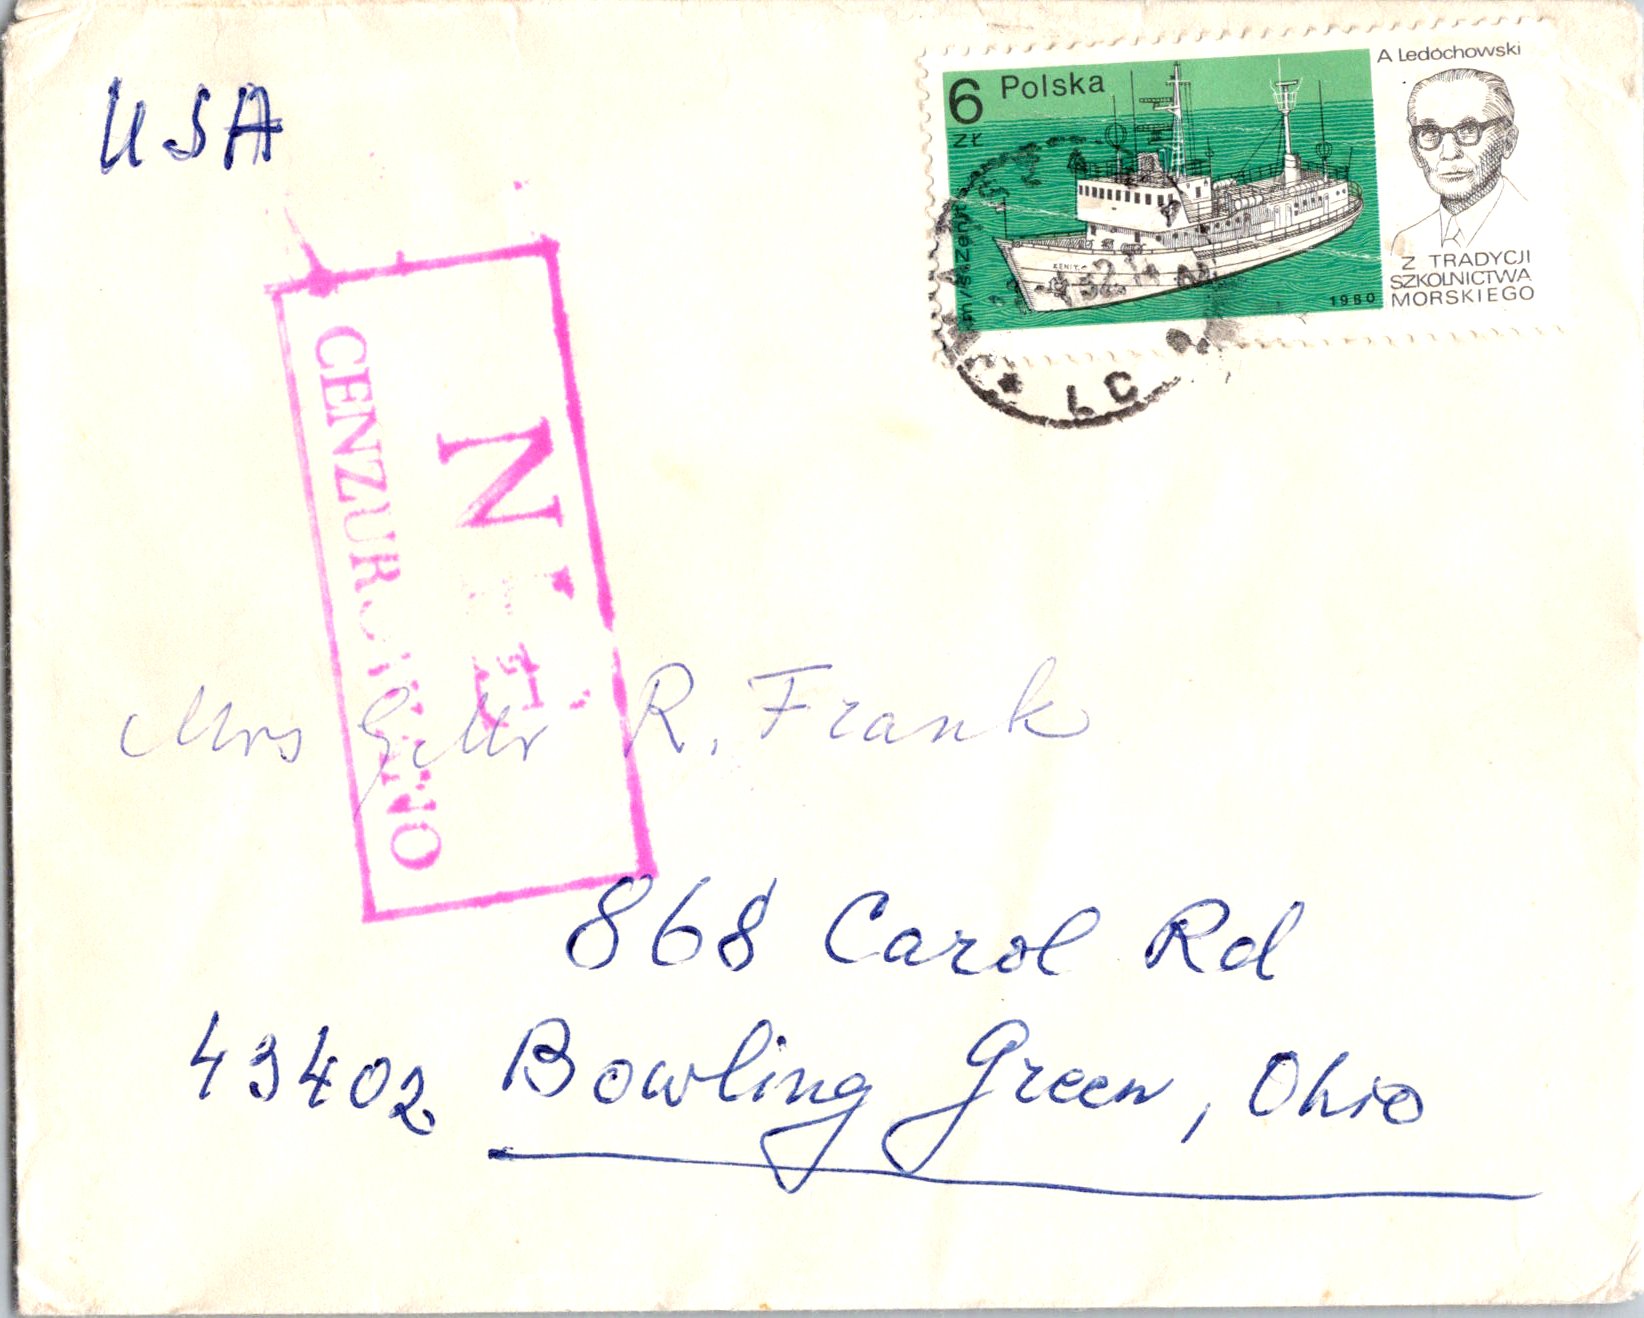 USA
A Ledóchowski
6 Polska
ZŁ
m/s Zenit
ZENIT
1980
Z TRADYCJI
SZKOLNICTWA
MORSKIEGO
N
CENZUR
NO
Mrs & Mr R. Frank
868 Carol Rd
43402 Bowling Green, Ohio